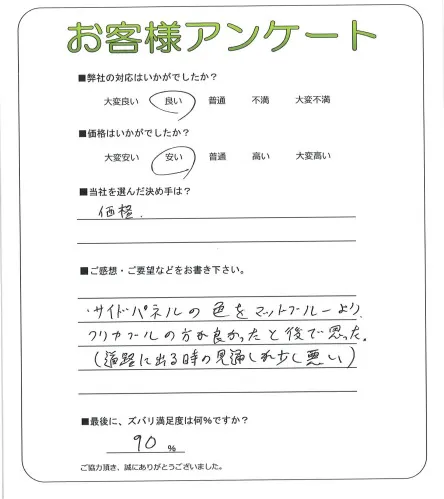 お客様アンケート
■弊社の対応はいかがでしたか？
大変良い 良い 普通 不満 大変不満
■価格はいかがでしたか？
大変安い 安い 普通 高い 大変高い
■当社を選んだ決め手は？
価格.
■ご感想・ご要望などをお書き下さい。
・サイドパネルの色をマットブルーより
クリアブルーの方が良かったと後で思った。
(道路に出る時の見通しが少し悪い)
■最後に、ズバリ満足度は何%ですか？
90 %
ご協力頂き、誠にありがとうございました。